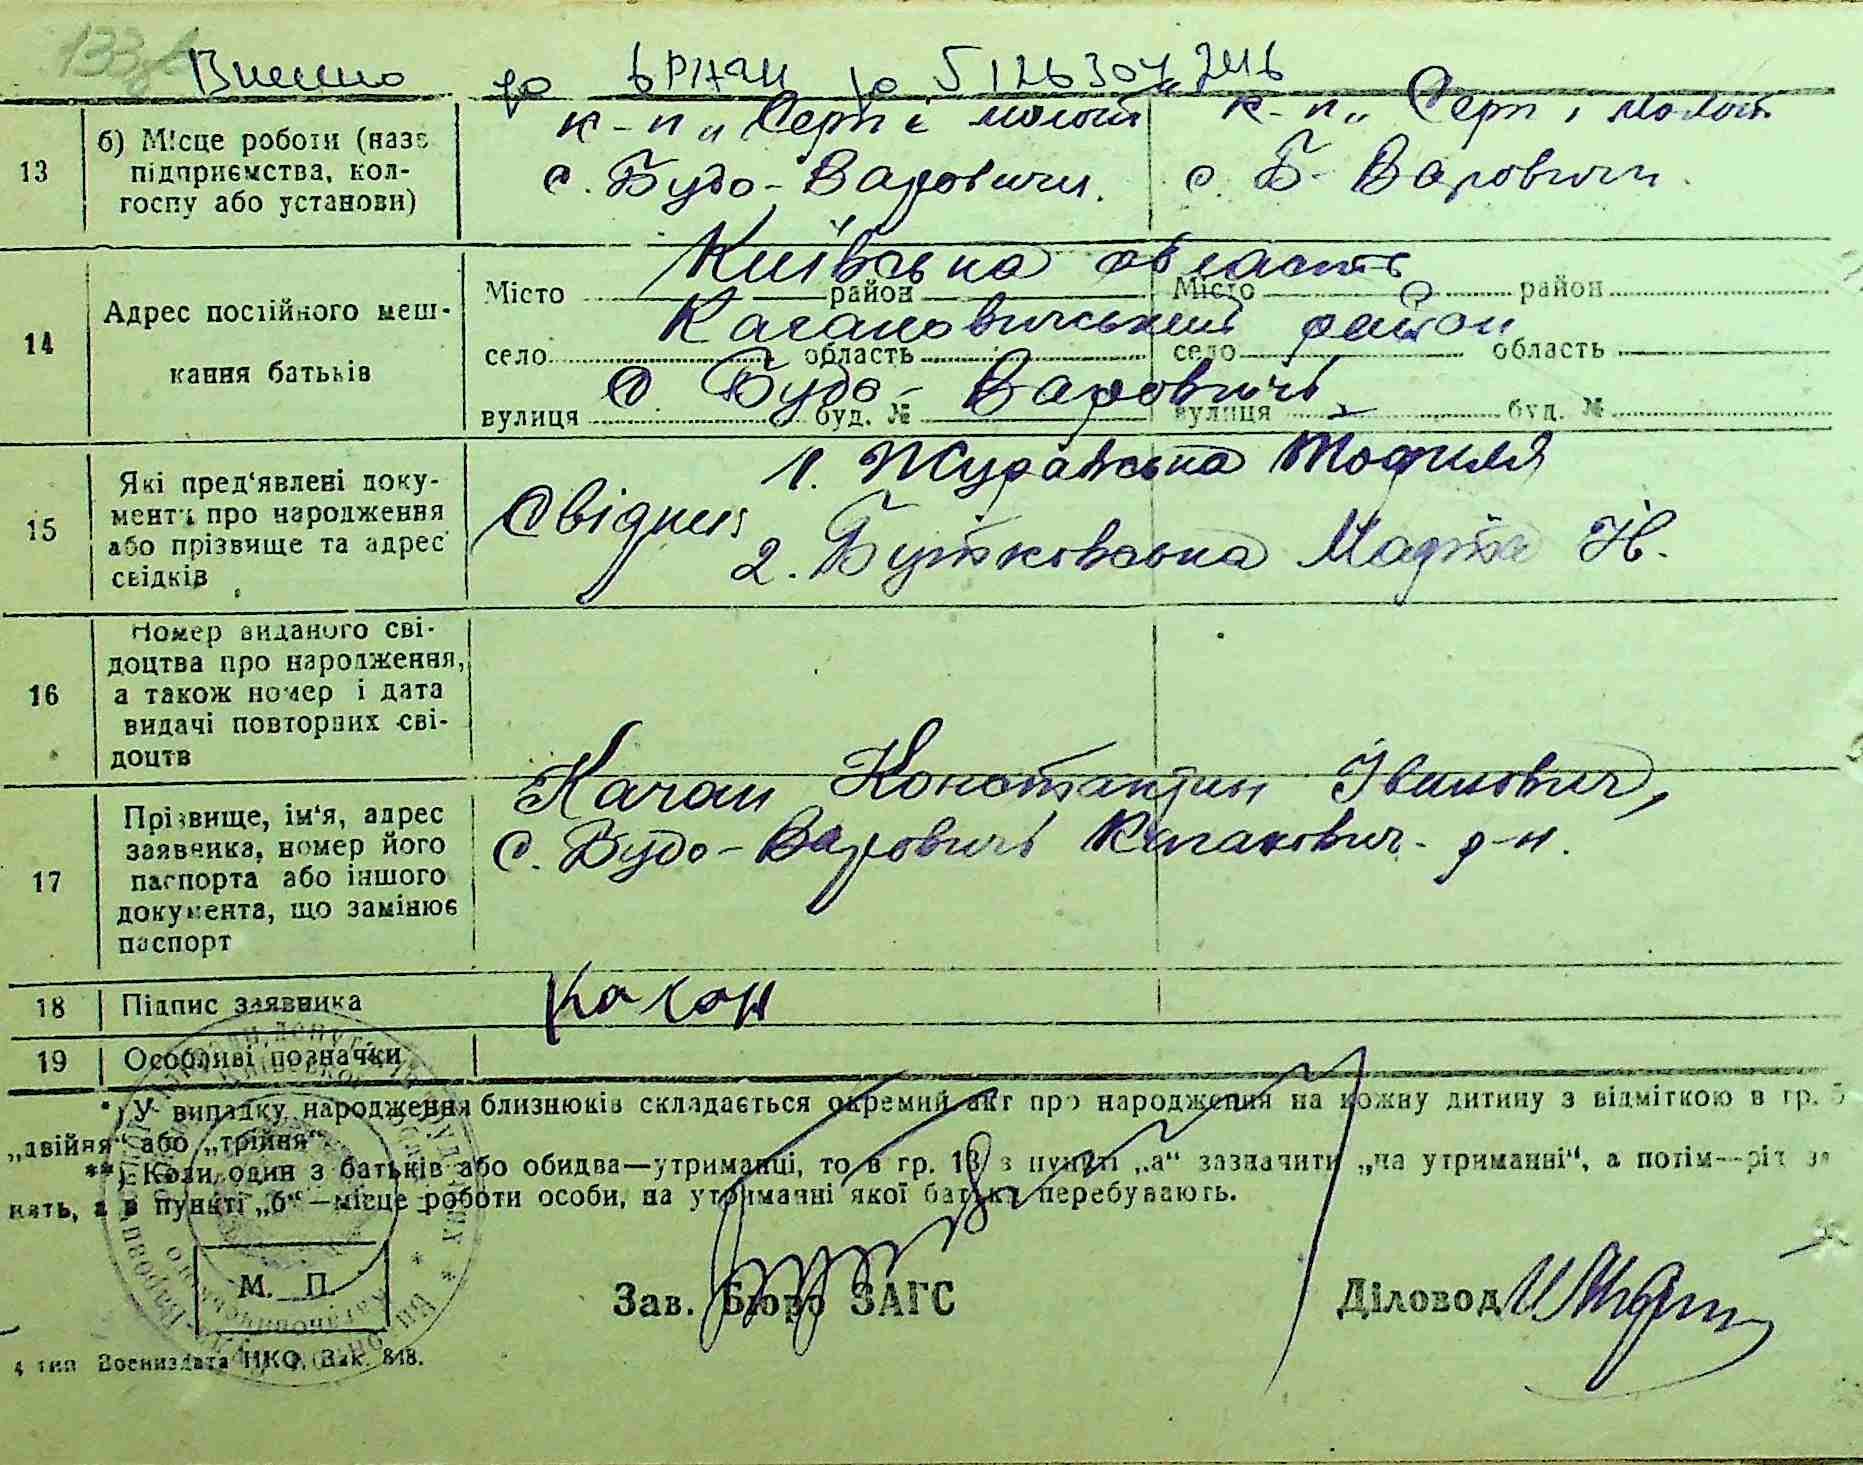 133
Внесено до ДРАЦС
13
б) Місце роботи (назв
підприємства, кол-
госпу або установи)
к-п „Серп і молот"
с. Будо-Варовичи.
к-п „Серп і молот
с. Б-Варовичи.
14
Адрес постійного меш-
кання батьків
Київська область
Місто район Місто район
Кагановичський район
село область село область
с Будо-Варовичі
вулиця буд. № вулиця буд. №
15
Які пред'явлені доку-
менти про народження
або прізвище та адрес
свідків
Свідки
1. Журавська
2. Бутковська Марта Й.
16
Номер виданого сві-
доцтва про народження,
а також номер і дата
видачі повторних сві-
доцтв
17
Прізвище, ім'я, адрес
заявника, номер його
паспорта або іншого
документа, що замінює
паспорт
Качан Константин Іванович,
с. Будо-Варовичі Каганович. р-н.
18
Підпис заявника
Качан
19
Особливі позначки
*) У випадку народження близнюків складається окремий акт про народження на кожну дитину з відміткою в гр. 5
„двійня" або „трійня"
**) Коли один з батьків або обидва—утриманці, то в гр. 13 в пункті „а" зазначити „на утриманні", а потім—рід за
нять, а в пункті „б"—місце роботи особи, на утриманні якої батьки перебувають.
М. П.
Зав. Бюро ЗАГС
Діловод
4 тип Воениздата НКО. Зак. 848.